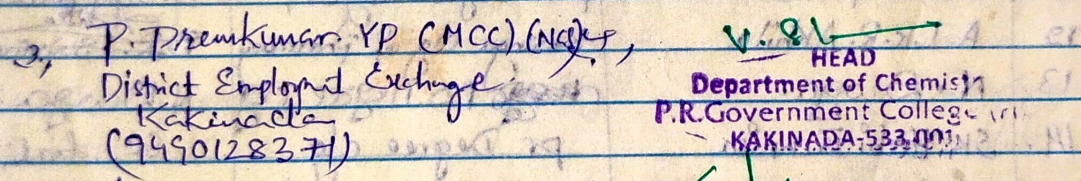 3, P. Premkumar YP (MCC) (NCS),
District Employmnt Exchange
Kakinada
(9490128371)
HEAD
Department of Chemistry
P.R.Government College
KAKINADA-533 001